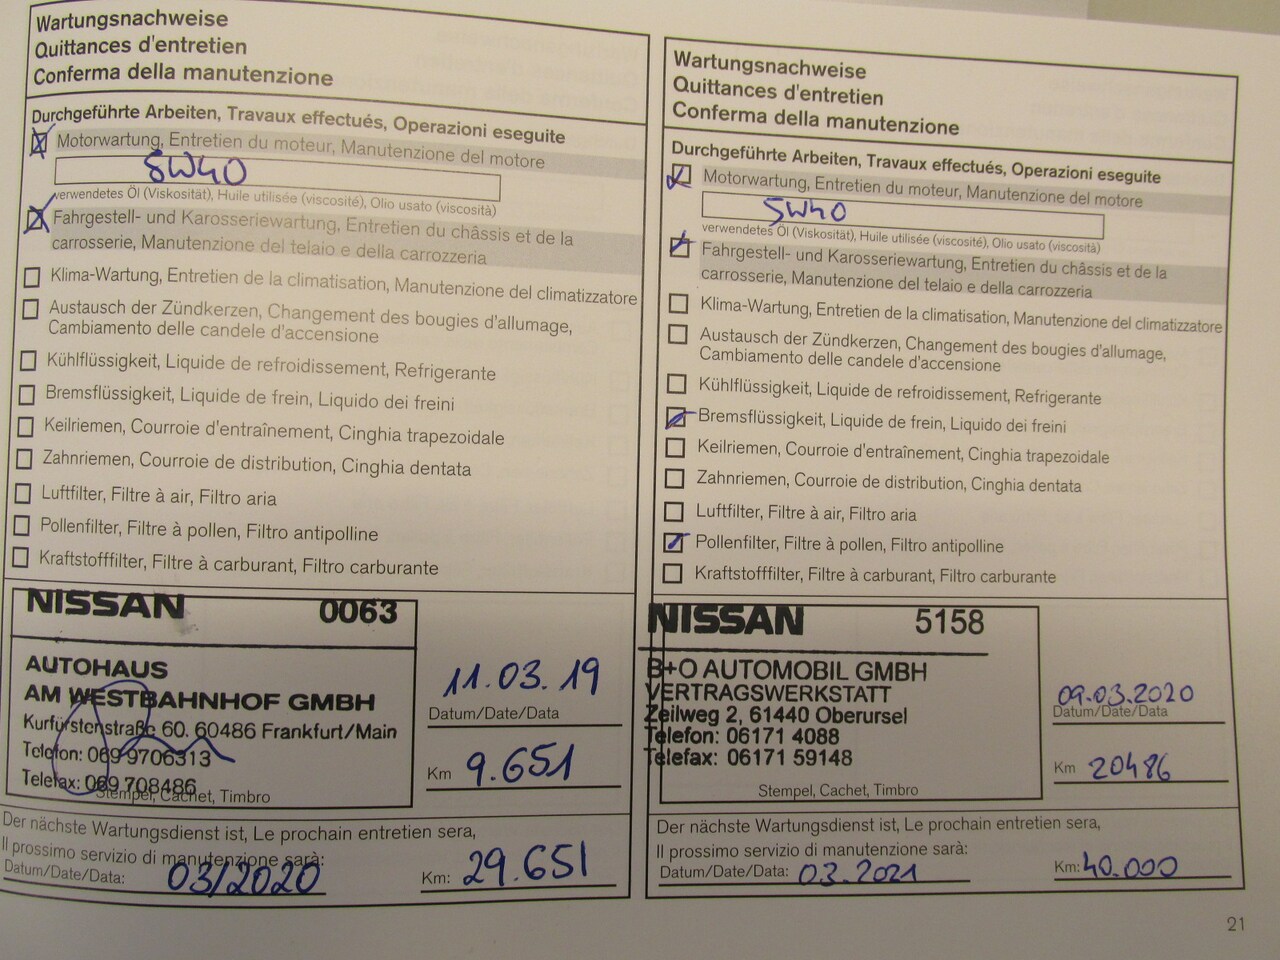 Wartungsnachweise
Quittances d'entretien
Conferma della manutenzione
Durchgeführte Arbeiten, Travaux effectués, Operazioni eseguite
Motorwartung, Entretien du moteur, Manutenzione del motore
5W40
verwendetes Öl (Viskosität), Huile utilisée (viscosité), Olio usato (viscosità)
Fahrgestell- und Karosseriewartung, Entretien du châssis et de la
carrosserie, Manutenzione del telaio e della carrozzeria
Klima-Wartung, Entretien de la climatisation, Manutenzione del climatizzatore
Austausch der Zündkerzen, Changement des bougies d'allumage,
Cambiamento delle candele d'accensione
Kühlflüssigkeit, Liquide de refroidissement, Refrigerante
Bremsflüssigkeit, Liquide de frein, Liquido dei freini
Keilriemen, Courroie d'entraînement, Cinghia trapezoidale
Zahnriemen, Courroie de distribution, Cinghia dentata
Luftfilter, Filtre à air, Filtro aria
Pollenfilter, Filtre à pollen, Filtro antipolline
Kraftstofffilter, Filtre à carburant, Filtro carburante
NISSAN 0063
AUTOHAUS
AM WESTBAHNHOF GMBH
Kurfürstenstraße 60. 60486 Frankfurt/Main
Telefon: 069 9706313
Telefax: 069 708486
Stempel, Cachet, Timbro
11.03.19
Datum/Date/Data
Km 9.651
Der nächste Wartungsdienst ist, Le prochain entretien sera,
Il prossimo servizio di manutenzione sarà:
Datum/Date/Data: 03/2020 Km: 29.651
Wartungsnachweise
Quittances d'entretien
Conferma della manutenzione
Durchgeführte Arbeiten, Travaux effectués, Operazioni eseguite
Motorwartung, Entretien du moteur, Manutenzione del motore
5W40
verwendetes Öl (Viskosität), Huile utilisée (viscosité), Olio usato (viscosità)
Fahrgestell- und Karosseriewartung, Entretien du châssis et de la
carrosserie, Manutenzione del telaio e della carrozzeria
Klima-Wartung, Entretien de la climatisation, Manutenzione del climatizzatore
Austausch der Zündkerzen, Changement des bougies d'allumage,
Cambiamento delle candele d'accensione
Kühlflüssigkeit, Liquide de refroidissement, Refrigerante
Bremsflüssigkeit, Liquide de frein, Liquido dei freini
Keilriemen, Courroie d'entraînement, Cinghia trapezoidale
Zahnriemen, Courroie de distribution, Cinghia dentata
Luftfilter, Filtre à air, Filtro aria
Pollenfilter, Filtre à pollen, Filtro antipolline
Kraftstofffilter, Filtre à carburant, Filtro carburante
NISSAN 5158
B+O AUTOMOBIL GMBH
VERTRAGSWERKSTATT
Zeilweg 2, 61440 Oberursel
Telefon: 06171 4088
Telefax: 06171 59148
Stempel, Cachet, Timbro
09.03.2020
Datum/Date/Data
Km 20486
Der nächste Wartungsdienst ist, Le prochain entretien sera,
Il prossimo servizio di manutenzione sarà:
Datum/Date/Data: 03.2021 Km: 40.000
21